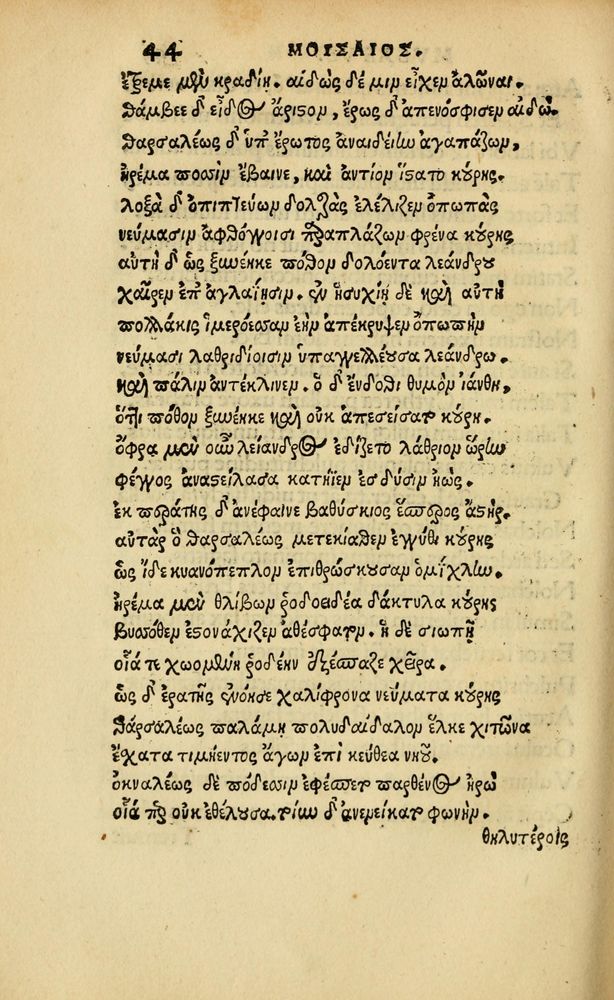 44 ΜΟΥΣΑΙΟΣ.
ἔτρεμε μὲν κραδίη. αἰδὼς δέ μιν εἶχεν ἁλῶναι.
θάμβεε δ' εἶδος ἄριστον, ἔρως δ' ἀπενόσφισεν αἰδῶ.
θαρσαλέως δ' ὑπ' ἔρωτος ἀναιδείην ἀγαπάζων,
ἠρέμα ποσὶν ἔβαινε, καὶ ἀντίον ἵστατο κούρης.
λοξὰ δ' ὀπιπτεύων δολερὰς ἐλέλιζεν ὀπωπὰς
νεύμασιν ἀφθόγγοισι παραπλάζων φρένα κούρης
αὐτὴ δ' ὡς ξυνέηκε πόθον δολόεντα λεάνδρου
χαῖρεν ἐπ' ἀγλαΐῃσιν. ἐν ἡσυχίῃ δὲ καὶ αὐτὴ
πολλάκις ἱμερόεσσαν ἑὴν ἀπέκρυψεν ὀπωπὴν
νεύμασι λαθριδίοισιν ὑπαγγέλλουσα λεάνδρῳ.
καὶ πάλιν ἀντέκλινεν. ὁ δ' ἔνδοθι θυμὸν ἰάνθη,
ὅττι πόθον ξυνέηκε καὶ οὐκ ἀπεσείσατο κούρη.
ὄφρα μὲν οὖν λείανδρος ἐδίζετο λάθριον ὥρην
φέγγος ἀναστείλασα κατήϊεν ἐς δύσιν ἠώς.
ἐκ περάτης δ' ἀνέφαινε βαθύσκιος ἕσπερος ἀστήρ.
αὐτὰρ ὁ θαρσαλέως μετεκίαθεν ἐγγύθι κούρης
ὡς ἴδε κυανόπεπλον ἐπιθρώσκουσαν ὁμίχλην.
ἠρέμα μὲν θλίβων ῥοδοειδέα δάκτυλα κούρης
βυσσόθεν ἐστονάχιζεν ἀθέσφατον. ἡ δὲ σιωπῇ
οἷά τε χωομένη ῥοδέην ἐξέσπασε χεῖρα.
ὡς δ' ἐρατῆς ἐνόησε χαλίφρονα νεύματα κούρης
θαρσαλέως παλάμῃ πολυδαίδαλον ἕλκε χιτῶνα
ἔσχατα τιμήεντος ἄγων ἐπὶ κεύθεα νηοῦ.
ὀκναλέως δὲ πόδεσσιν ἐφέσπετο παρθένος ἡρὼ
οἷά περ οὐκ ἐθέλουσα. τοίην δ' ἀνενείκατο φωνήν.
θηλυτέροις